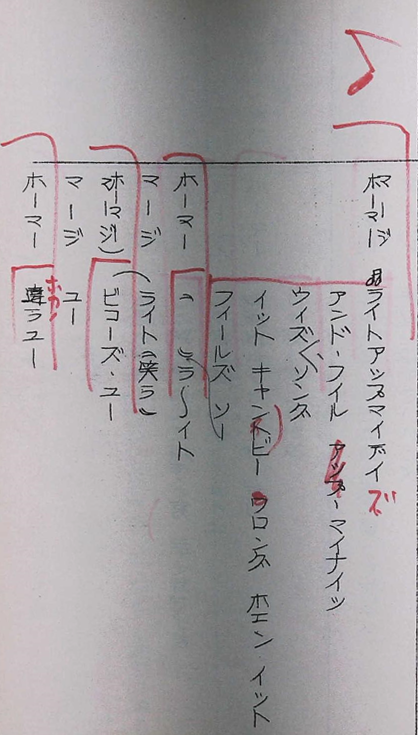 マージ ライトアップマイデイズ
アンド・フィル アップ・マイナイツ
ウィズ ソング
イット キャントビー ロング ホエン イット
フィールズ ソー
ホーマー ラ〜イト
マージ ライト(笑う)
ビコーズ・ユー
マージ ユー
ホーマー ユー